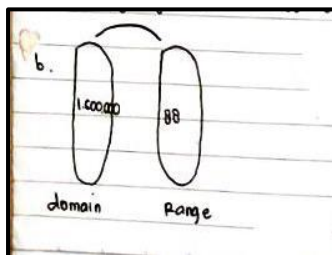 b.
1.600.000 88
domain Range